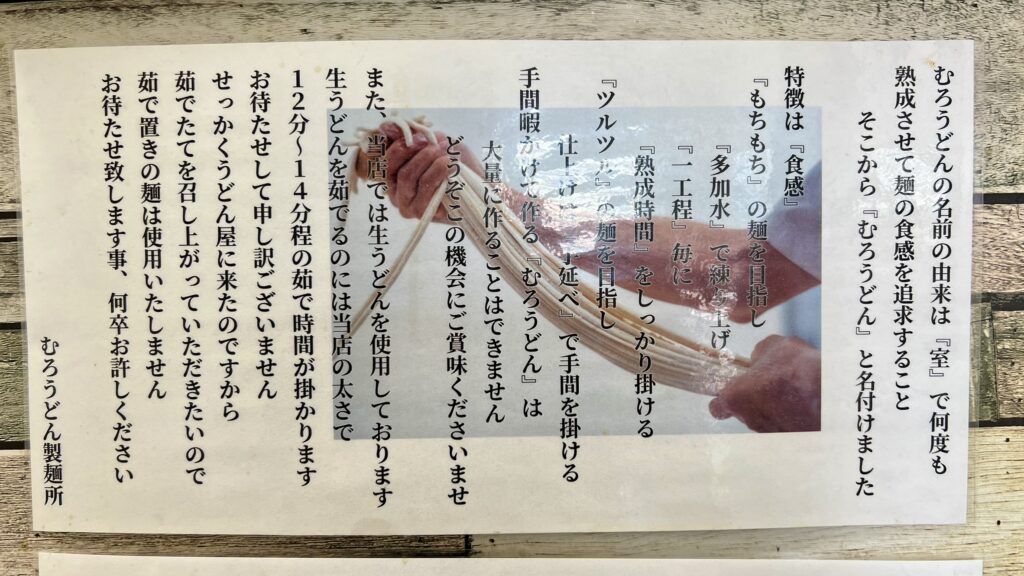 むろうどんの名前の由来は『室』で何度も
熟成させて麺の食感を追求すること
そこから『むろうどん』と名付けました
特徴は『食感』
『もちもち』の麺を目指し
『多加水』で練り上げ
『一工程』毎に
『熟成時間』をしっかり掛ける
『ツルツル』の麺を目指し
仕上げに『手延べ』で手間を掛ける
手間暇かけて作る『むろうどん』は
大量に作ることはできません
どうぞこの機会にご賞味くださいませ
また、当店では生うどんを使用しております
生うどんを茹でるのには当店の太さで
12分〜14分程の茹で時間が掛かります
お待たせして申し訳ございません
せっかくうどん屋に来たのですから
茹でたてを召し上がっていただきたいので
茹で置きの麺は使用いたしません
お待たせ致します事、何卒お許しください
むろうどん製麺所